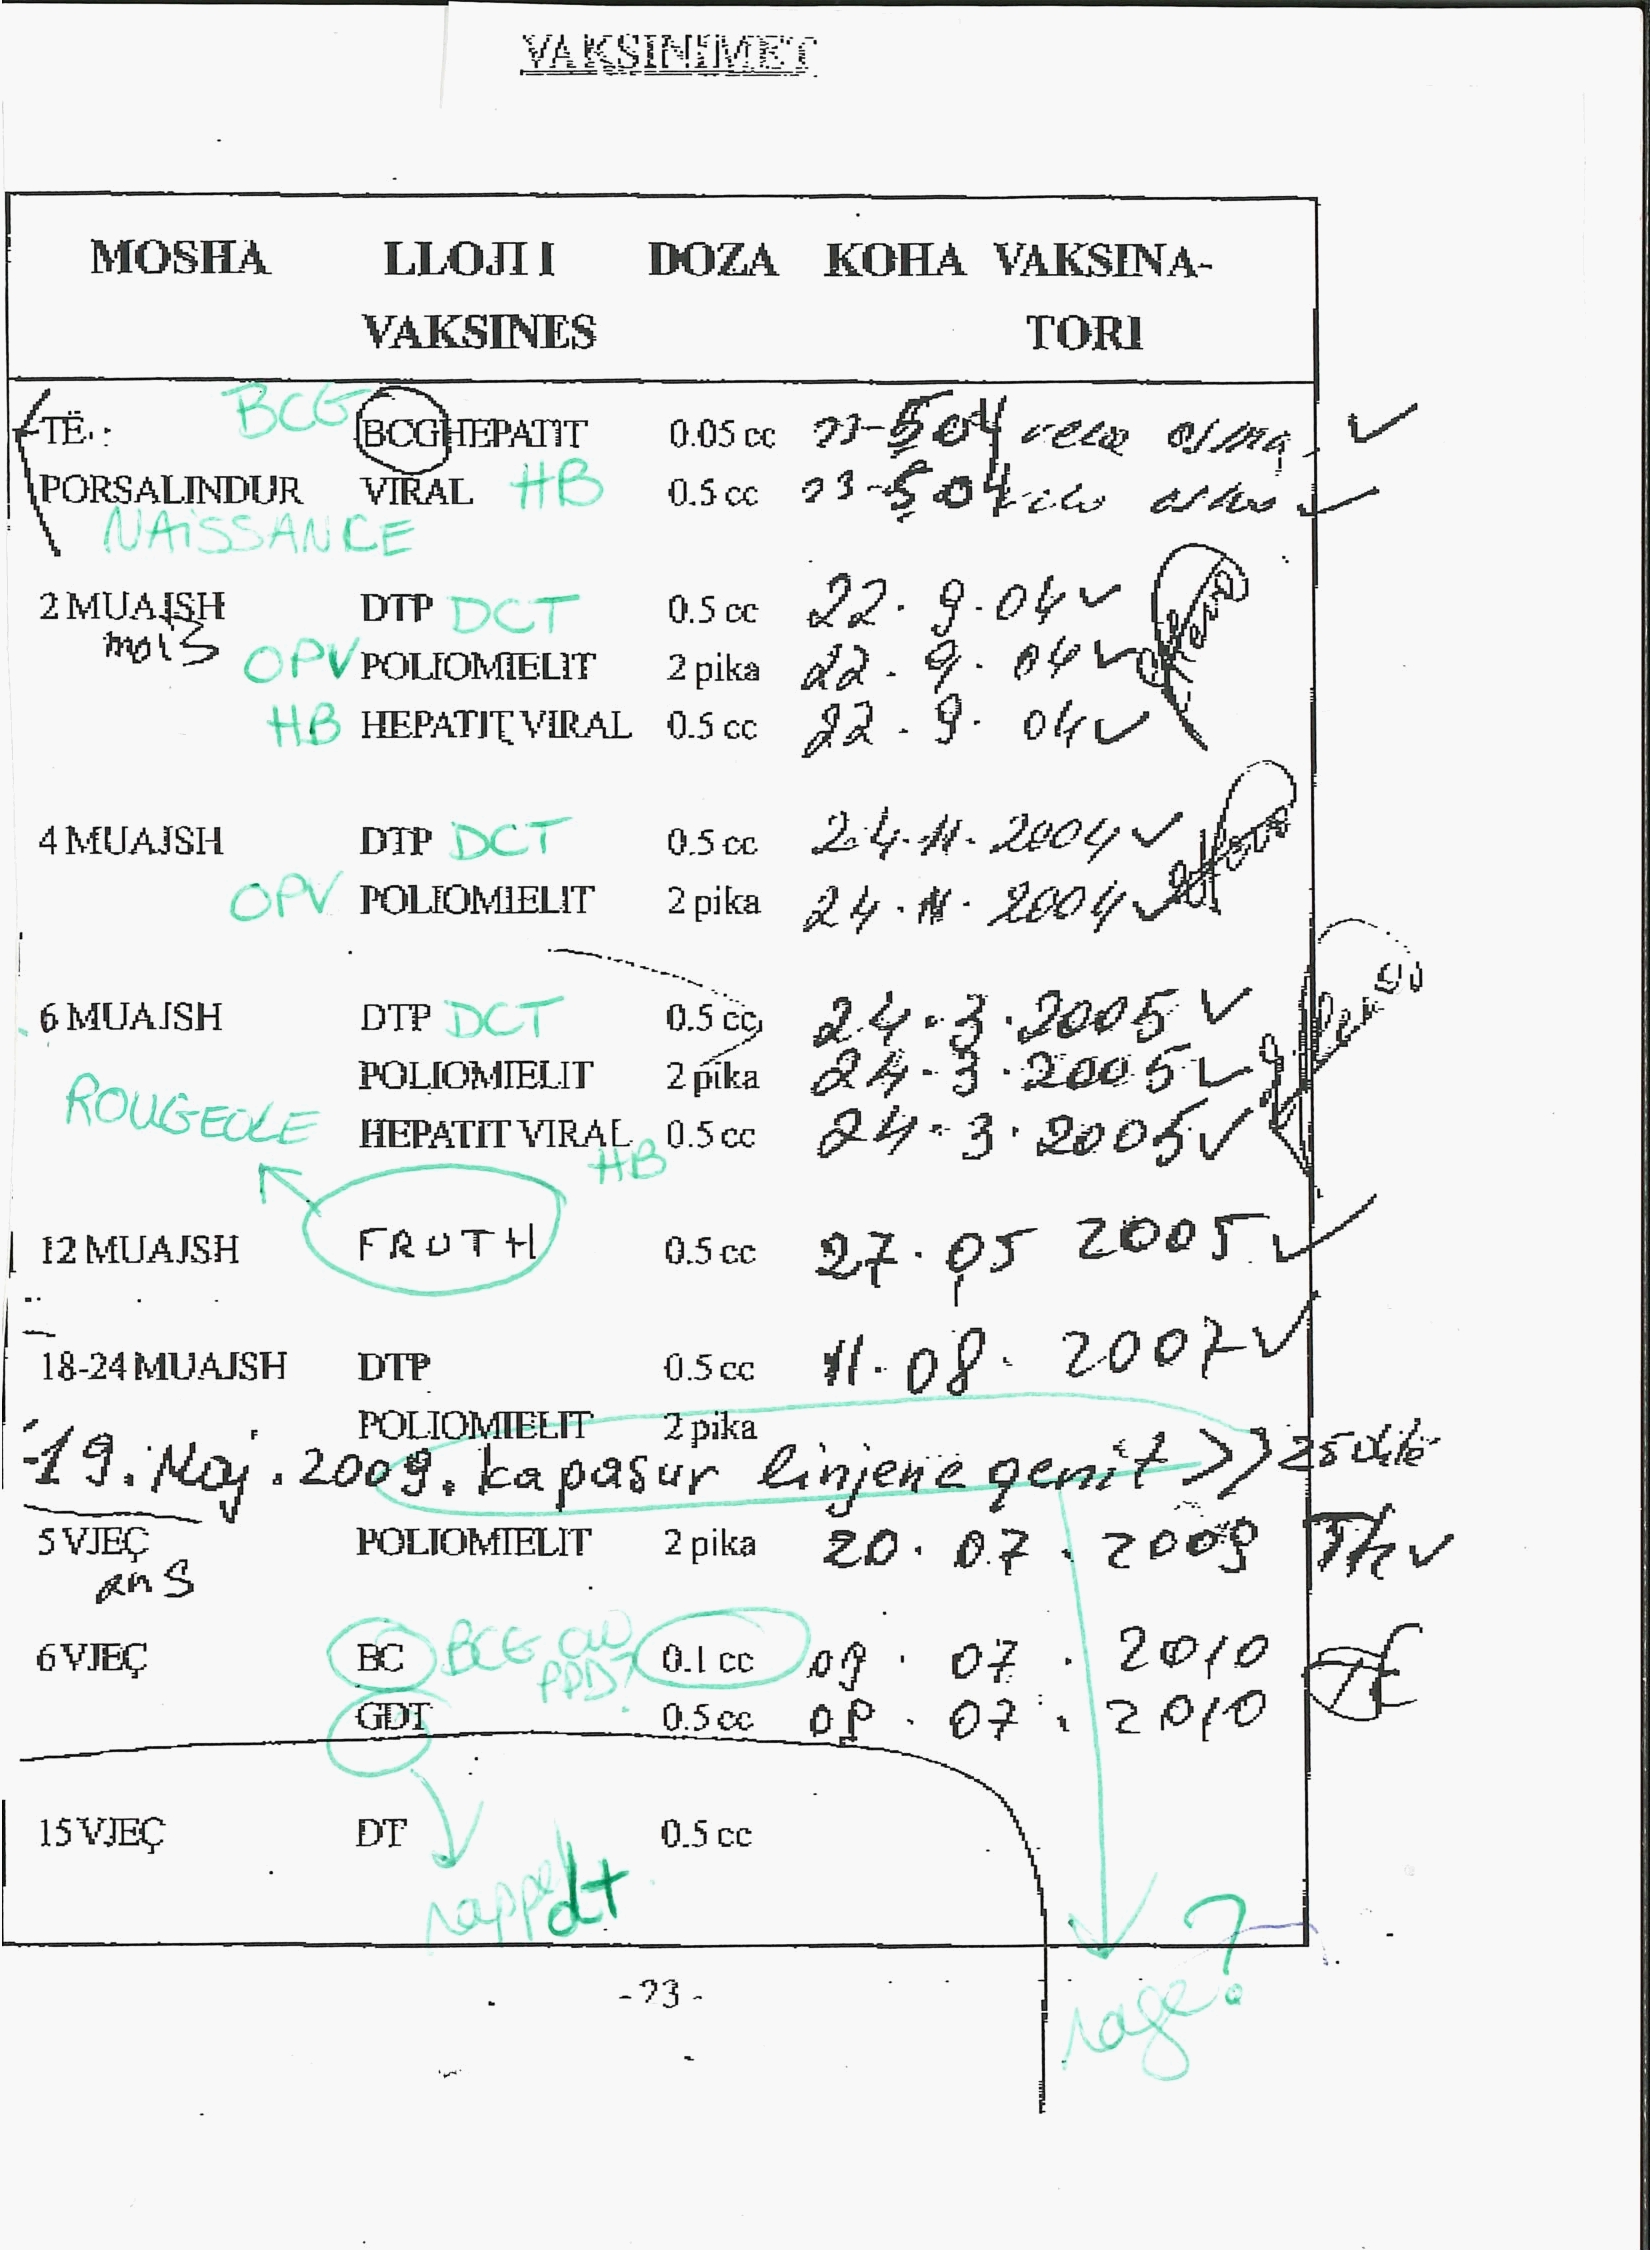 VAKSINIMET
MOSHA LLOJI I DOZA KOHA VAKSINA-
VAKSINES TORI
BCG
TË BCG HEPATIT 0.05 cc
PORSALINDUR VIRAL HB 0.5 cc
NAISSANCE
2 MUAJSH DTP DCT 0.5 cc 22.9.04
mois OPV POLIOMIELIT 2 pika 22.9.04
HB HEPATIT VIRAL 0.5 cc 22.9.04
4 MUAJSH DTP DCT 0.5 cc 24.11.2004
OPV POLIOMIELIT 2 pika 24.11.2004
6 MUAJSH DTP DCT 0.5 cc 24.3.2005
POLIOMIELIT 2 pika 24.3.2005
ROUGEOLE HEPATIT VIRAL 0.5 cc 24.3.2005
HB
12 MUAJSH FRUTH 0.5 cc 27.05 2005
18-24 MUAJSH DTP 0.5 cc 11.08.2007
POLIOMIELIT 2 pika
19. Maj. 2009. ka pasur linjene qenit >> 25 ditë
5 VJEÇ POLIOMIELIT 2 pika 20.07.2009
ans
6 VJEÇ BC BCG ou 0.1 cc 09.07.2010
PPD?
GDT 0.5 cc 07.2010
15 VJEÇ DT 0.5 cc
rappel dt
-23-
rage?